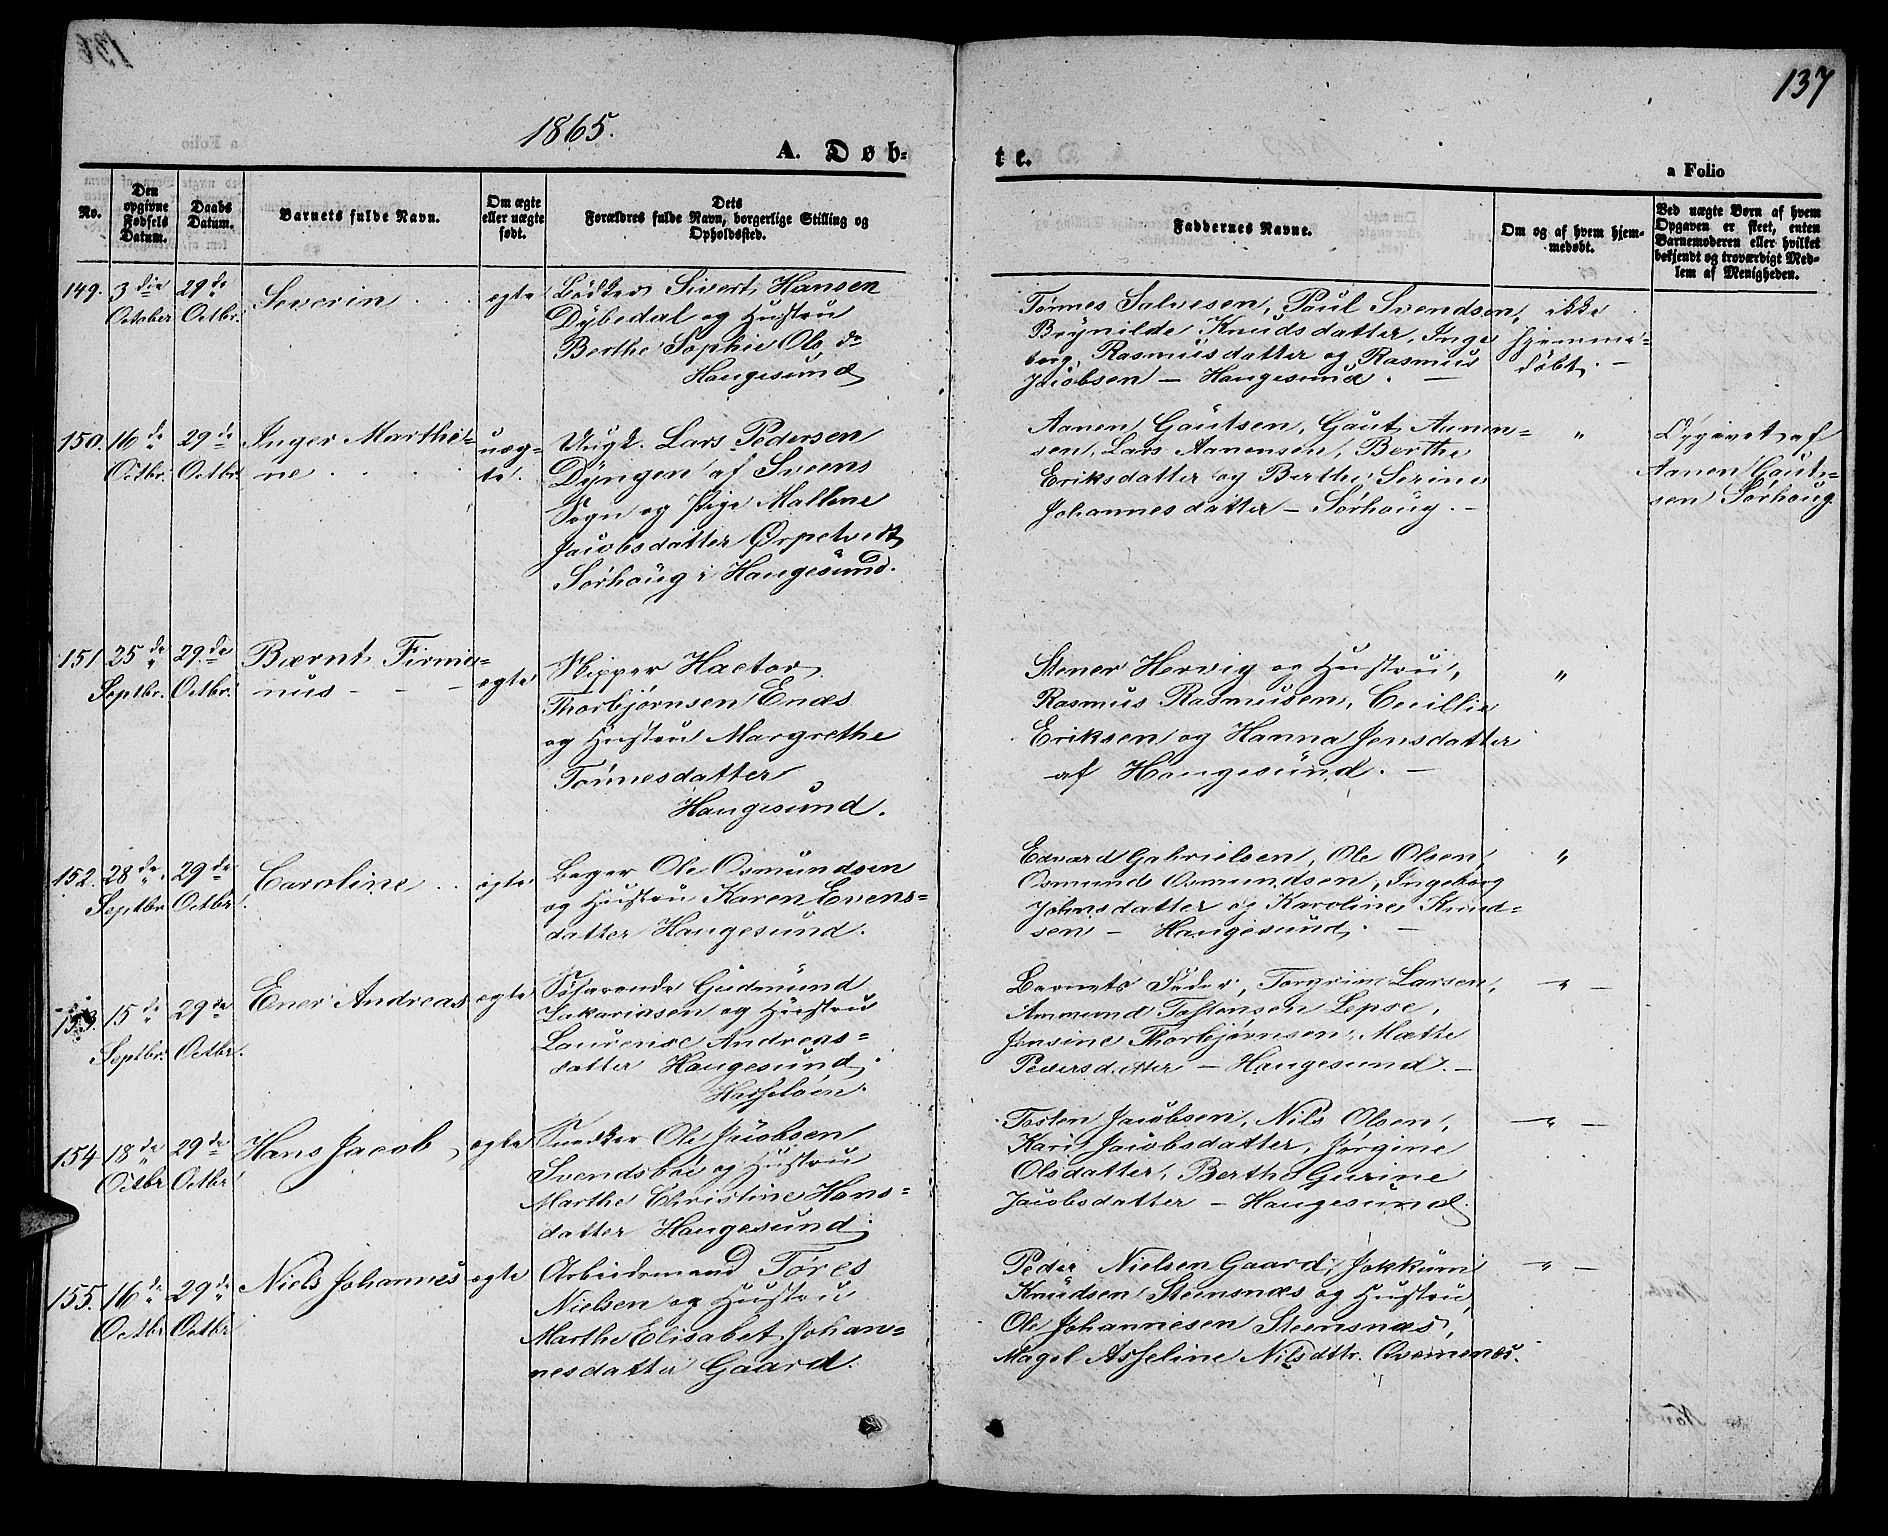 137
1865.
A. Døb-
te.
a Folio
No.
Den opgivne Fødsels Datum.
Daabs Datum.
Barnets fulde Navn.
Om ægte eller uægte født.
Dets Forældres fulde Navn, borgerlige Stilling og Opholdssted.
Faddernes Navne.
Om og af hvem hjemmedøbt.
Ved uægte Børn af hvem Opgaven er skeet, enten Barnemoderen eller hvilket bekjendt og troværdigt Medlem af Menigheden.
149. 3die October 29de Octbr. Severin egte
Bødker Sivert Hansen
Dybedal og Hustru
Berthe Sophie Ols dr
Haugesund
Tørnes Salvesen, Poul Svendsen,
Brynilde Knudsdatter, Inge
borg Rasmusdatter og Rasmus
Jacobsen — Haugesund. —
ikke
hjemme-
døbt. —
150. 16de Octbr. 29de Octbr. Inger Marthe-
ne
uæg-
te.
Ungk. Lars Pedersen
Dyngen af Sveens
Sogn og Pige Mallene
Jacobsdatter Ørpetvedt
Sørhaug i Haugesund.
Aanen Gautsen, Gaut Aanen-
sen, Lars Aanensen, Berthe
Eriksdatter og Berthe Serine
Johannesdatter — Sørhaug. —
"
Opgivet af
Aanen Gaut-
sen Sørhaug
151 25de Septbr. 29de Octbr. Bærnt Firmi-
nus - - -
egte
Skipper Hactor
Thorbjørnsen Enæs
og Hustru Margrethe
Tønnesdatter
Haugesund.
Stener Hervig og Hustru,
Rasmus Rasmusen, Cecillie
Eriksen og Hanna Jensdatter
af Haugesund. —
"
152. 28de Septbr 29de Octbr. Caroline egte
Borger Ole Osmundsen
og Hustru Karen Evens-
datter Haugesund.
Edvard Gabrielsen, Ole Olsen
Osmund Osmundsen, Ingeborg
Johnsdatter og Karoline Knud-
sen — Haugesund. —
"
153. 15de Septbr. 29de Octbr. Ener Andreas egte
Søfarende Gudmund
Zakariasen og Hustru
Laurense Andreas-
datter Haugesund
Hasseløen.
Barnets Fader, Torgrim Larsen,
Ammund Tostensen Lepsø,
Jensine Thorbjørnsen, Mætte
Pedersdatter — Haugesund. —
" —
154 18de Octbr 29de Octbr Hans Jacob egte
Snedker Ole Jacobsen
Svendsbøe og Hustru
Marthe Christine Hans-
datter Haugesund.
Tosten Jacobsen, Nils Olsen,
Kari Jacobsdatter, Jørgine
Olsdatter, Berthe Gurine
Jacobsdatter — Haugesund.
— " —
155. 16de Octbr 29de Octbr Niels Johannes egte
Arbeidsmand Tøres
Nielsen og Hustru
Marthe Elisabet Johan-
nesdatter Gaard.
Peder Nielsen Gaard, Jokkum
Knudsen Steensnæs og Hustru,
Ole Johannesen Steensnæs,
Magel Asseline Nilsdtr.
" —